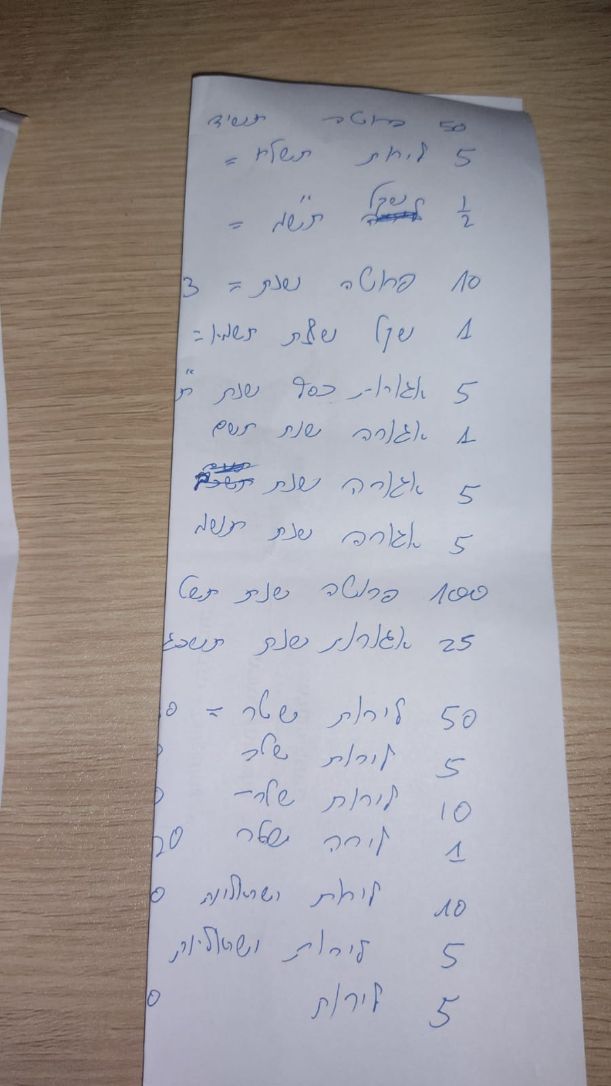 50 פרוטה תשי"ד
5 לירות תשל"ח =
1/2 שקל תש"מ =
10 פרוטה שנת = 3
1 שקל שנת תשמא =
5 אגורות כסף שנת ת"
1 אגורה שנת תשם
5 אגורה שנת
5 אגורה שנת תשמ
100 פרוטה שנת תשט
25 אגורות שנת תשכג
50 לירות שטר =
5 לירות שטר
10 לירות שטר -
1 לירה שטר
10 לירות ישראליות
5 לירות ישראליות
5 לירות